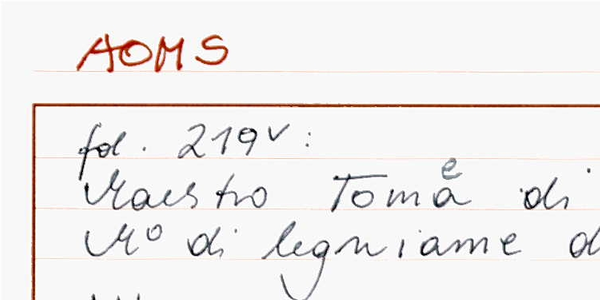 AOMS
fol. 219v:
Maestro Tomae di
Mo di legniame d